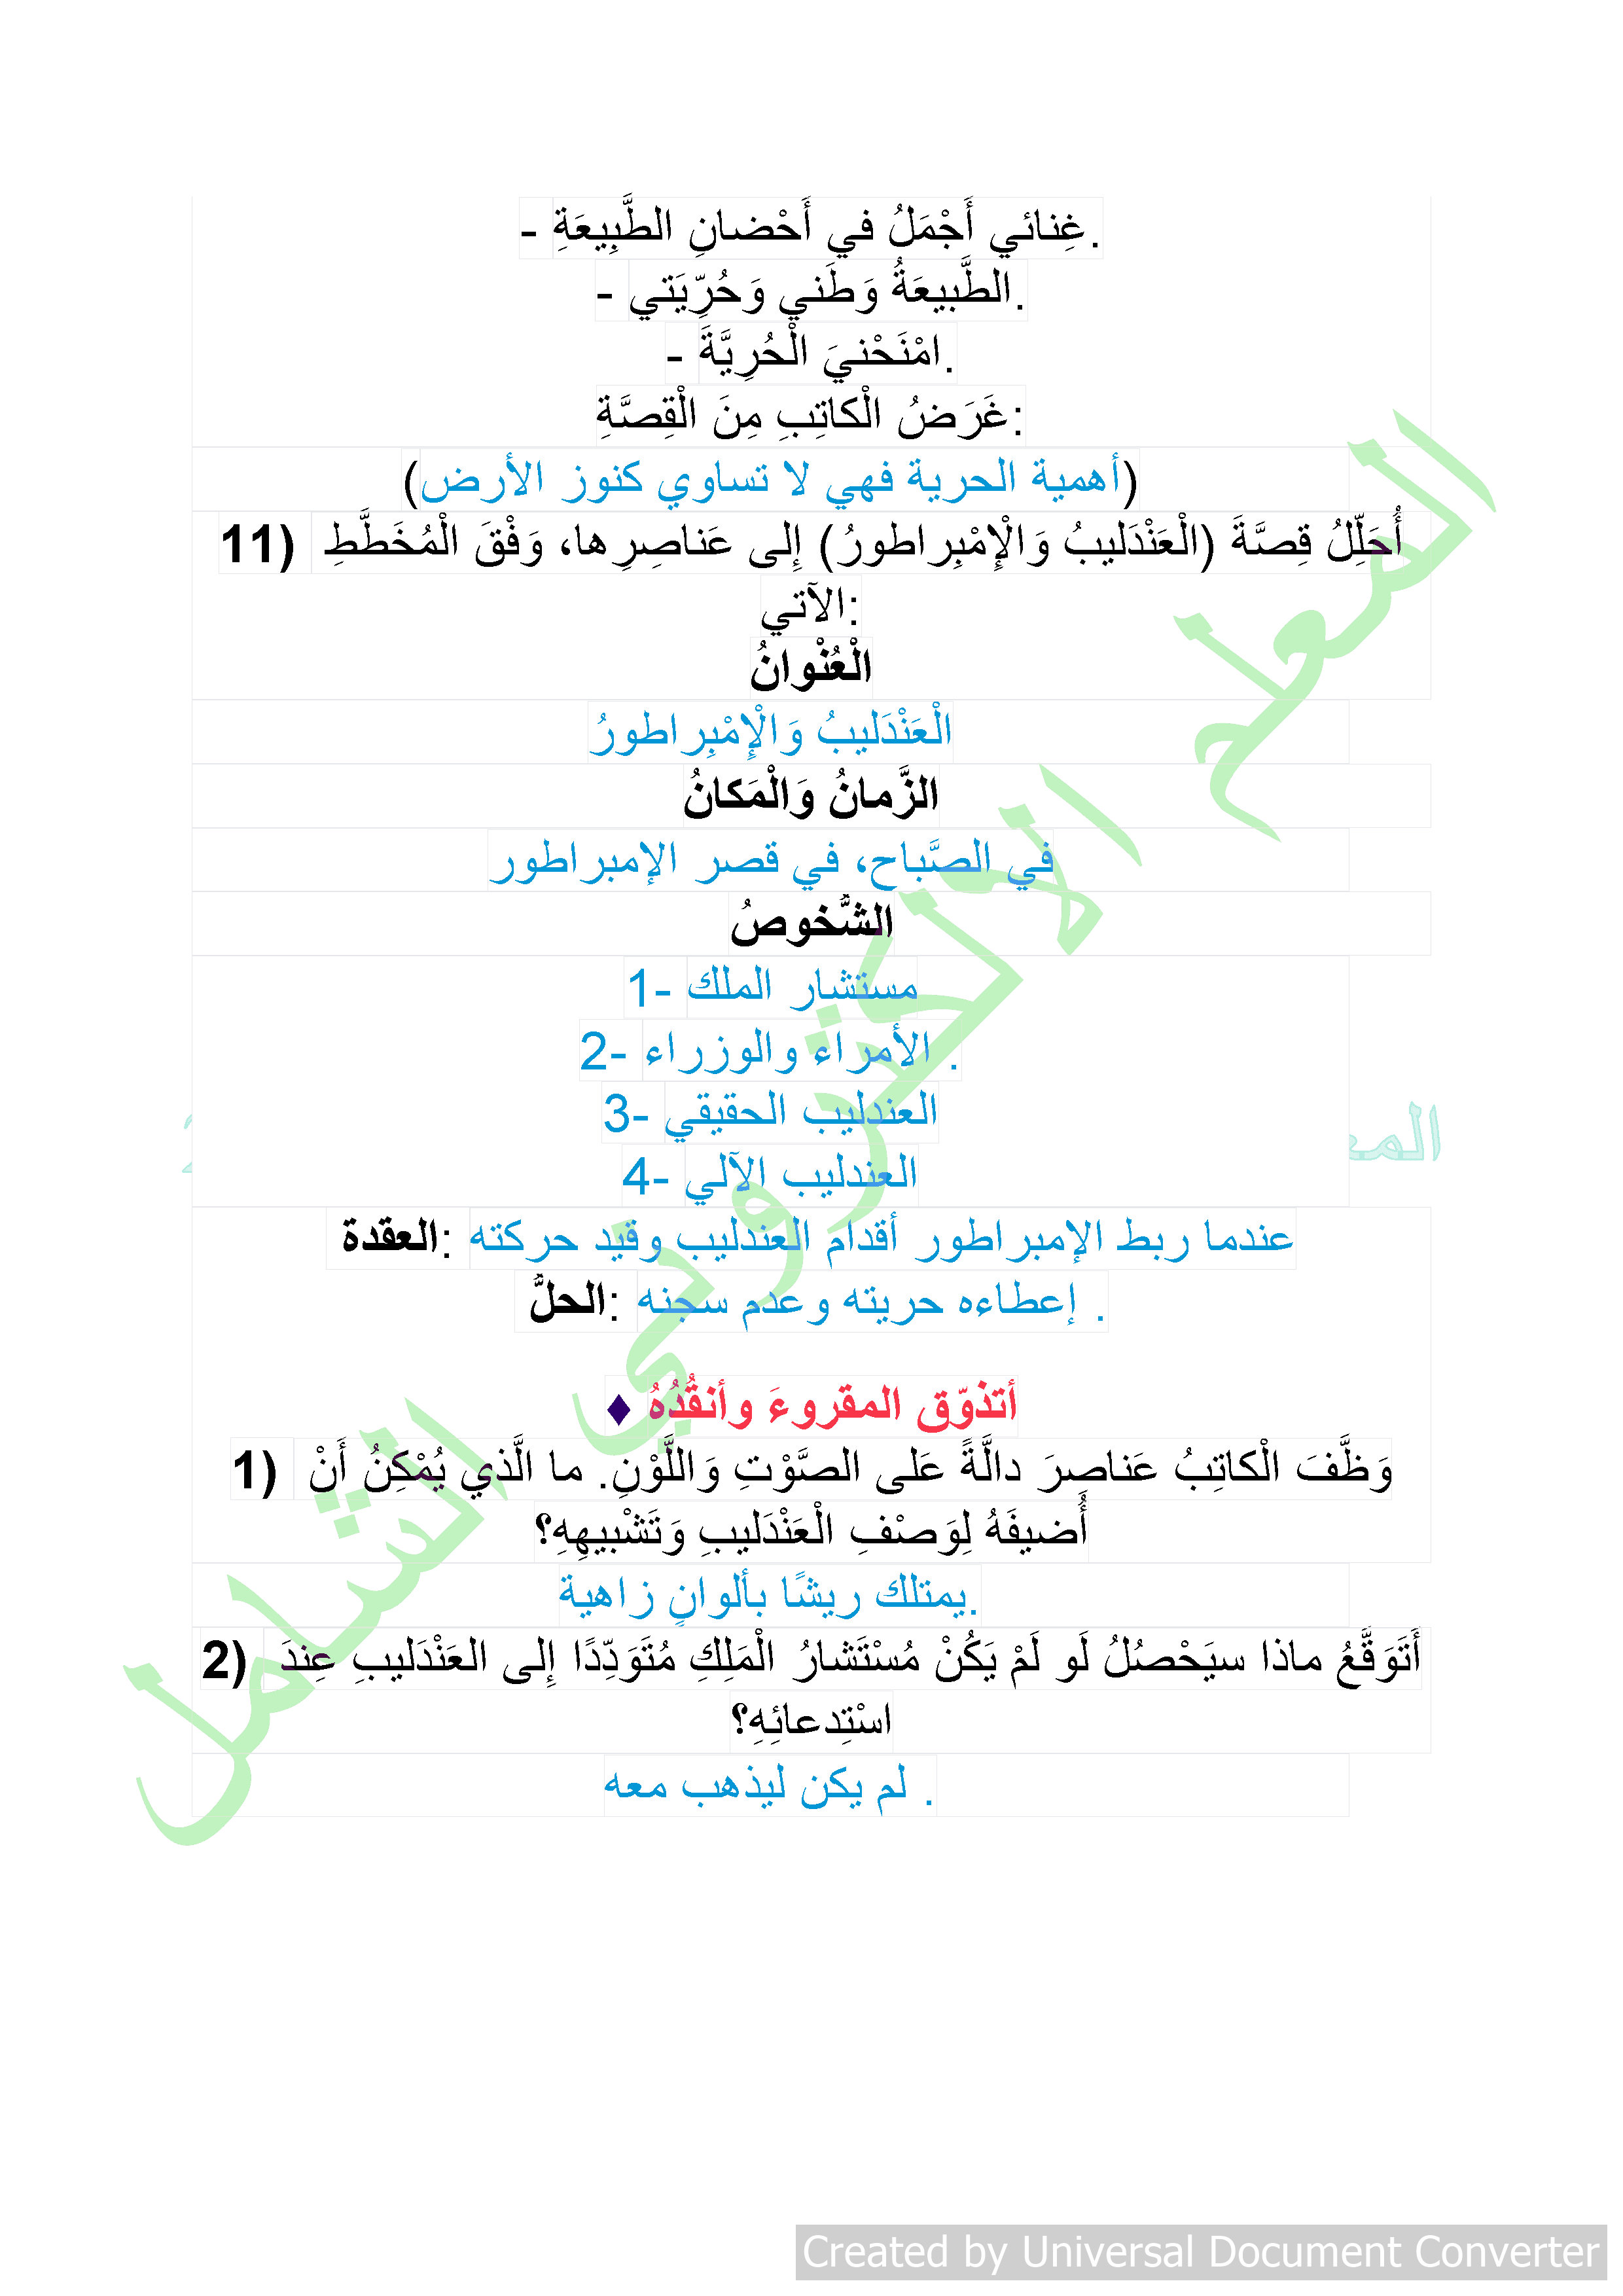 - غِنائي أَجْمَلُ في أَحْضانِ الطَّبِيعَةِ.
- الطَّبيعَةُ وَطَني وَحُرِّيَتي.
- امْنَحْنيَ الْحُرِيَّةَ.
غَرَضُ الْكاتِبِ مِنَ الْقِصَّةِ:
(أهمية الحرية فهي لا تساوي كنوز الأرض)
11) أُحَلِّلُ قِصَّةَ (الْعَنْدَليبُ وَالْإِمْبِراطورُ) إِلى عَناصِرِها، وَفْقَ الْمُخَطَّطِ
الآتي:
الْعُنْوانُ
الْعَنْدَليبُ وَالْإِمْبِراطورُ
الزَّمانُ وَالْمَكانُ
في الصَّباح، في قصر الإمبراطور
الشُّخوصُ
1- مستشار الملك
2- الأمراء والوزراء .
3- العندليب الحقيقي
4- العندليب الآلي
العقدة: عندما ربط الإمبراطور أقدام العندليب وقيد حركته
الحلُّ: إعطاءه حريته وعدم سجنه .
♦ أتذوّق المقروءَ وأنقُدُهُ
1) وَظَّفَ الْكاتِبُ عَناصِرَ دالَّةً عَلى الصَّوْتِ وَاللَّوْنِ. ما الَّذي يُمْكِنُ أَنْ
أُضيفَهُ لِوَصْفِ الْعَنْدَليبِ وَتَشْبيهِهِ؟
يمتلك ريشًا بألوانٍ زاهية.
2) أَتَوَقَّعُ ماذا سيَحْصُلُ لَو لَمْ يَكُنْ مُسْتَشارُ الْمَلِكِ مُتَوَدِّدًا إِلى العَنْدَليبِ عِندَ
اسْتِدعائِهِ؟
لم يكن ليذهب معه .
المعلم الالكتروني الشامل
Created by Universal Document Converter